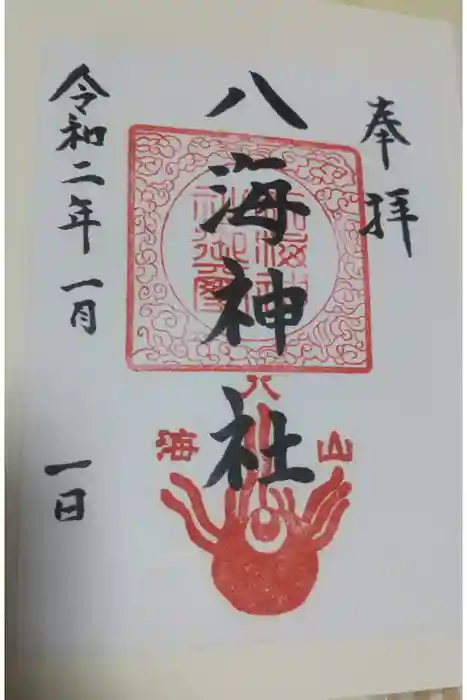 奉拝
八海神社
令和二年一月一日
八
海
山